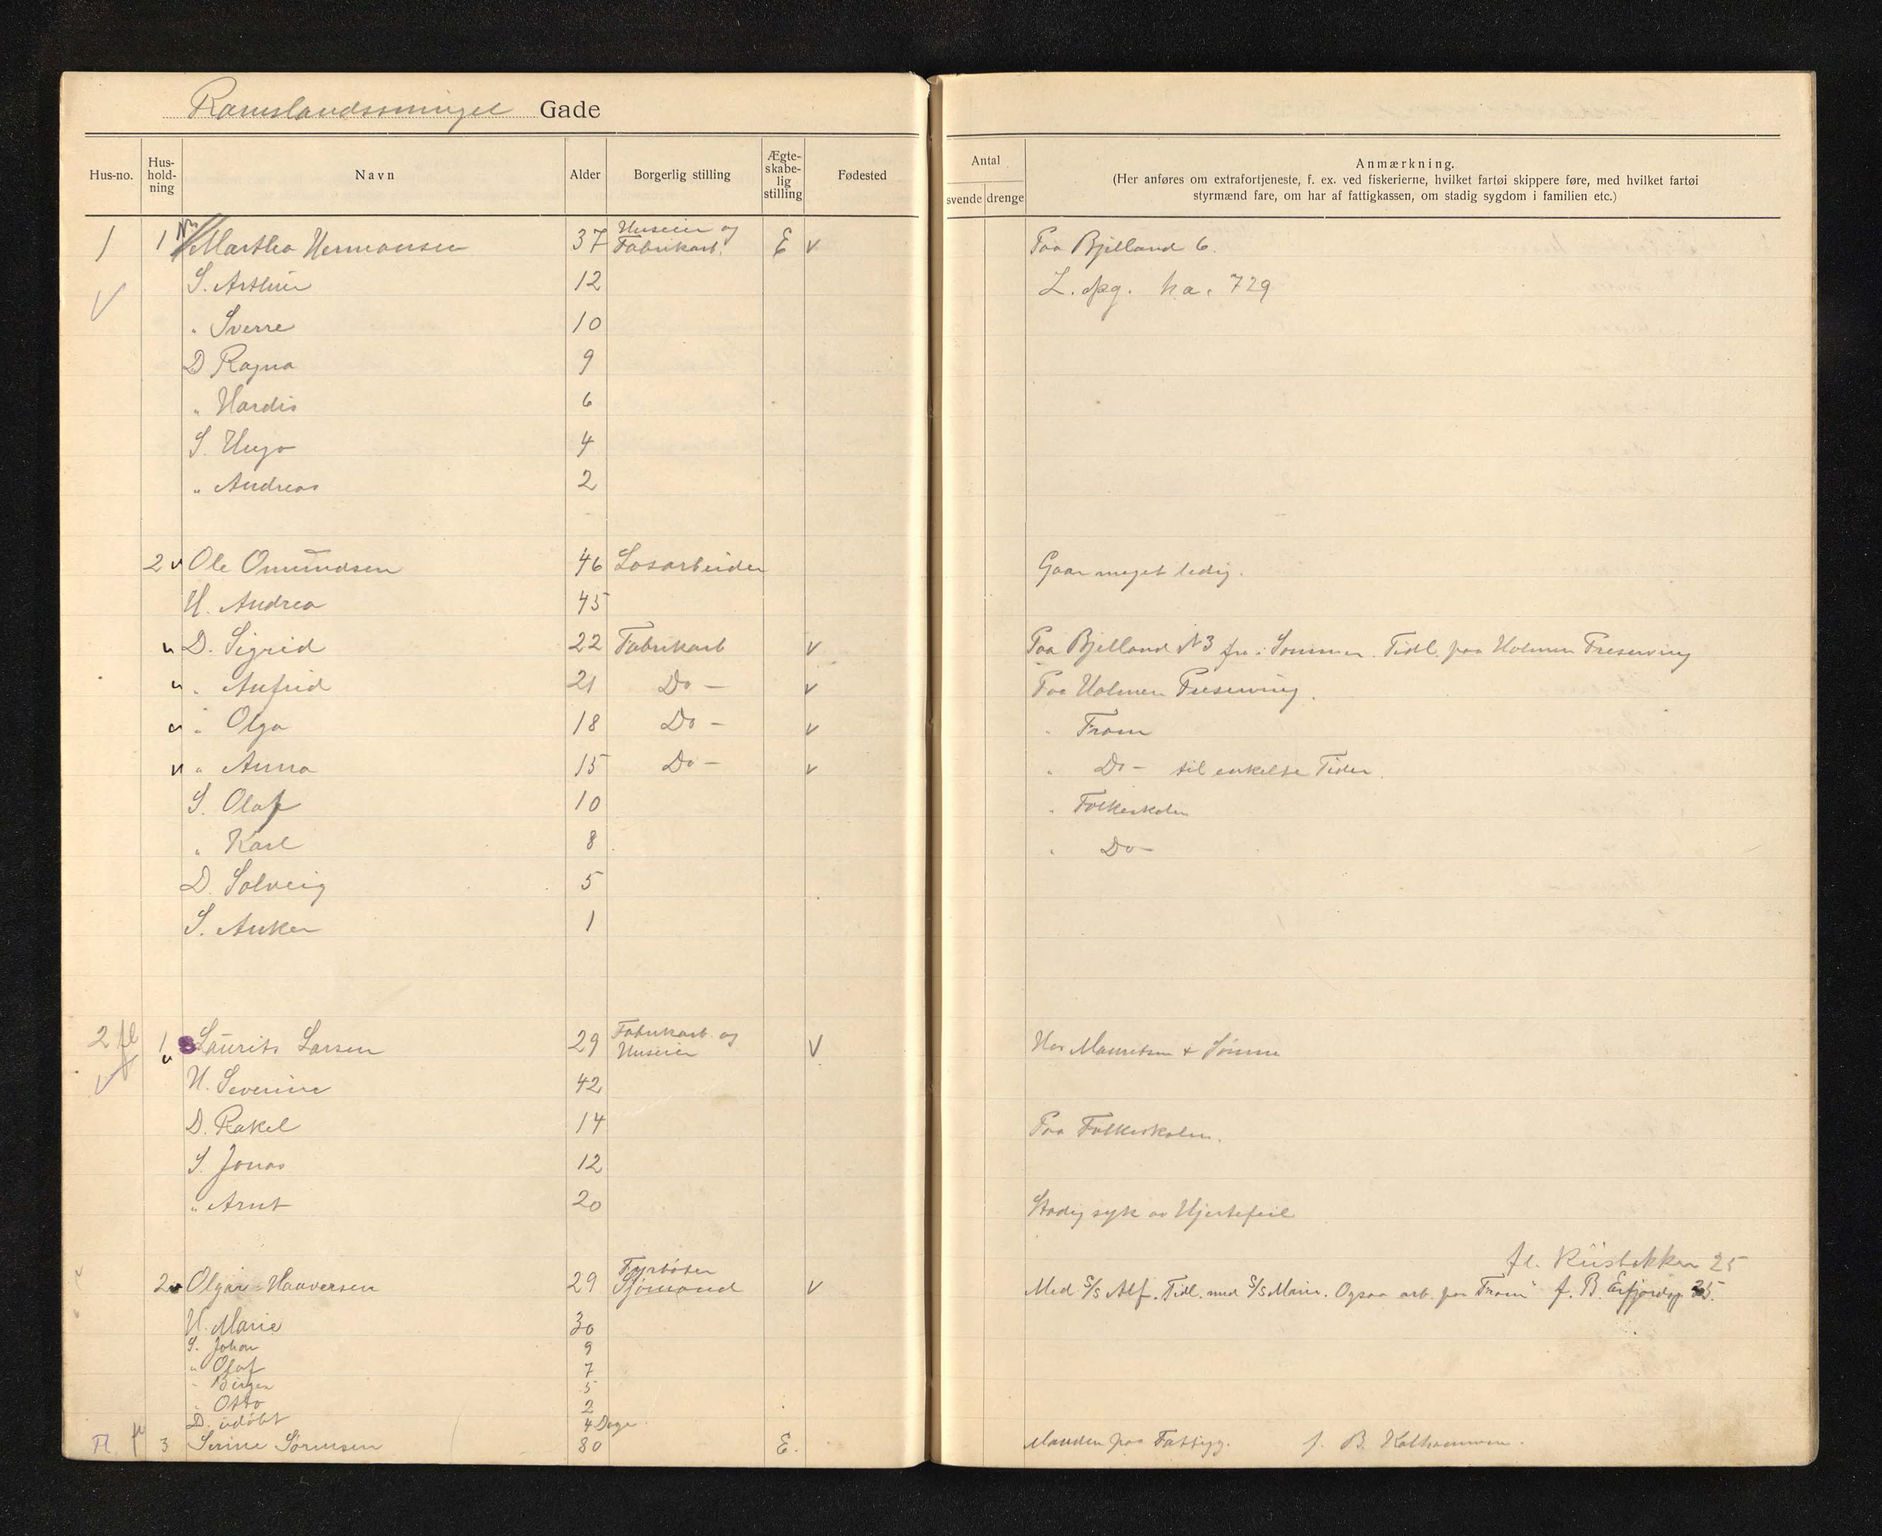 Ramslandssminget Gade
Hus-no. Hus-hold-ning Navn Alder Borgerlig stilling Ægte-skabe-lig stilling Fødested
Antal
svende drenge
Anmærkning.
(Her anføres om extrafortjeneste, f. ex. ved fiskerierne, hvilket fartøi skippere føre, med hvilket fartøi
styrmænd fare, om har af fattigkassen, om stadig sygdom i familien etc.)
1 1 Martha Hermansen 37 Huseier og Fabrikarb. E v Paa Bjelland 6.
S. Arthur 12 L. opg. ha. 729
" Sverre 10
D Ragna 9
" Hardis 6
S. Hugo 4
" Andreas 2
2 v Ole Omundsen 46 Løsarbeider Gaar meget ledig.
H. Andrea 45
v D. Sigrid 22 Fabrikarb v Paa Bjelland N 3 fra i Sommer. Tidl. paa Holmen Preserving
v " Anfrid 21 Do - v Paa Holmen Preserving.
v " Olga 18 Do - v " Fram
v " Anna 15 Do - v " Do - til enkelte Tider.
S. Olaf 10 " Folkeskolen
" Karl 8 " Do -
D. Solveig 5
S. Anker 1
2 fl 1 v Laurits Larsen 29 Fabrikarb. og Huseier v Hos Mauritsen & Sømme
H. Severine 42
D. Rakel 14 Paa Folkeskolen.
S. Jonas 12
" Arnt 20 Stadig syk av Hjertefeil
fl. Riisbakken 25
2 Olgar Haaversen 29 Fyrbøter Sjømand v Med S/S Alf. Tidl. med S/S Marie. Ogsaa arb. paa Fram" f. B. Erfjordsg. 35.
H. Marie 30
S. Johan 9
" Olaf 7
" Birger 5
" Otto 2
D. udøbt 4 Dage
Fl. fl 3 Serine Sørensen 80 E. Manden paa Fattigg. f. B.